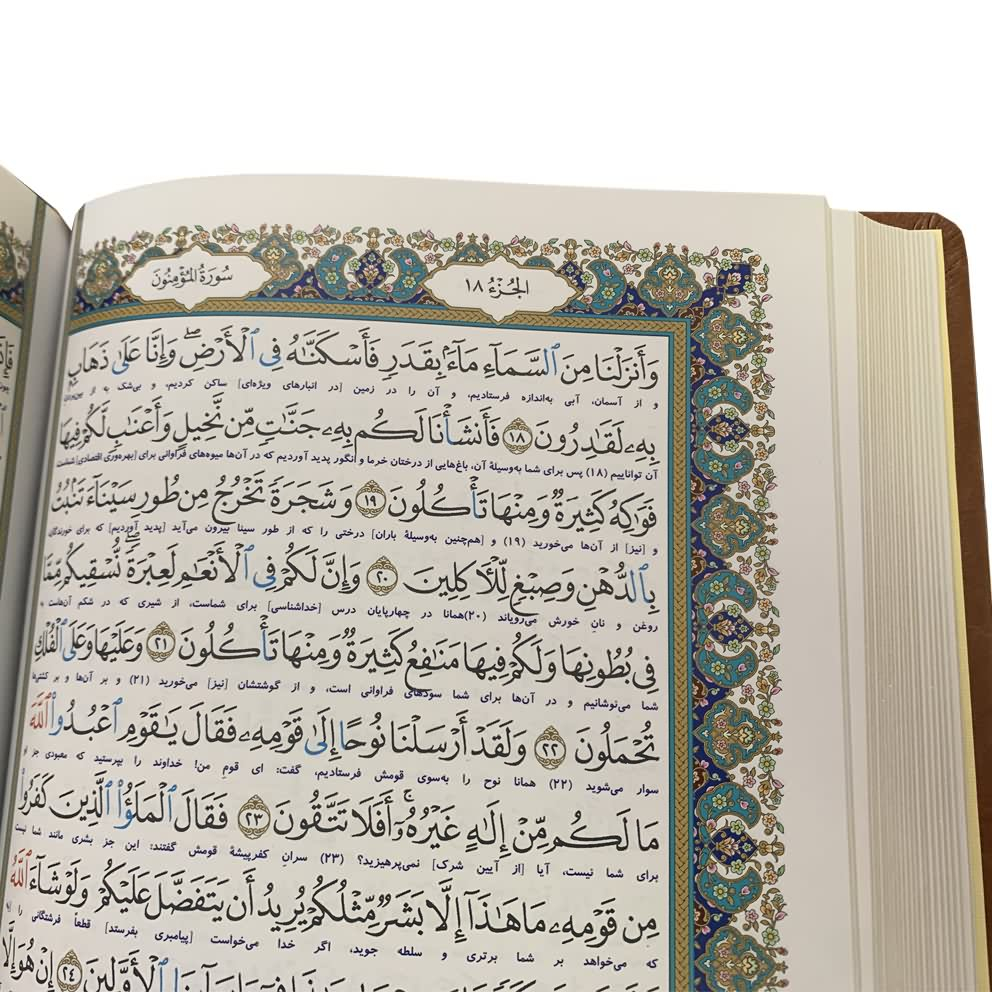 الجُزْءُ ١٨
سُورَةُ المُؤْمِنُونَ
وَأَنزَلْنَا مِنَ ٱلسَّمَآءِ مَآءًۢ بِقَدَرٍ فَأَسْكَنَّٰهُ فِي ٱلْأَرْضِۖ وَإِنَّا عَلَىٰ ذَهَابٍۭ
و از آسمان، آبی به‌اندازه فرستادیم، و آن را در زمین [در انبارهای ویژه‌ای] ساکن کردیم، و بی‌شک به از
بِهِۦ لَقَٰدِرُونَ ۝١٨ فَأَنشَأْنَا لَكُم بِهِۦ جَنَّٰتٍ مِّن نَّخِيلٍ وَأَعْنَٰبٍ لَّكُمْ فِيهَا
آن تواناییم (۱۸) پس برای شما به‌وسیلهٔ آن، باغ‌هایی از درختان خرما و انگور پدید آوردیم که در آن‌ها میوه‌های فراوانی برای [بهره‌وری اقتصادی] شماست
فَوَٰكِهُ كَثِيرَةٌ وَمِنْهَا تَأْكُلُونَ ۝١٩ وَشَجَرَةً تَخْرُجُ مِن طُورِ سَيْنَآءَ تَنۢبُتُ
و [نیز] از آن‌ها می‌خورید (۱۹) و [هم‌چنین به‌وسیلهٔ باران] درختی را که از طور سینا بیرون می‌آید [پدید آوردیم] که برای خورندگان
بِٱلدُّهْنِ وَصِبْغٍ لِّلْـَٔاكِلِينَ ۝٢٠ وَإِنَّ لَكُمْ فِي ٱلْأَنْعَٰمِ لَعِبْرَةًۖ نُّسْقِيكُم مِّمَّا
روغن و نان خورش می‌رویاند (۲۰)همانا در چهارپایان درس [خداشناسی] برای شماست، از شیری که در شکم آن‌هاست به
فِي بُطُونِهَا وَلَكُمْ فِيهَا مَنَٰفِعُ كَثِيرَةٌ وَمِنْهَا تَأْكُلُونَ ۝٢١ وَعَلَيْهَا وَعَلَى ٱلْفُلْكِ
شما می‌نوشانیم و در آن‌ها برای شما سودهای فراوانی است، و از گوشتشان [نیز] می‌خورید (۲۱) و بر آن‌ها و بر کشتی‌ها
تُحْمَلُونَ ۝٢٢ وَلَقَدْ أَرْسَلْنَا نُوحًا إِلَىٰ قَوْمِهِۦ فَقَالَ يَٰقَوْمِ ٱعْبُدُوا۟ ٱللَّهَ
سوار می‌شوید (۲۲) همانا نوح را به‌سوی قومش فرستادیم، گفت: ای قوم من! خداوند را بپرستید که معبودی جز او
مَا لَكُم مِّنْ إِلَٰهٍ غَيْرُهُۥٓۚ أَفَلَا تَتَّقُونَ ۝٢٣ فَقَالَ ٱلْمَلَؤُا۟ ٱلَّذِينَ كَفَرُوا۟
برای شما نیست، آیا [از آیین شرک] نمی‌پرهیزید؟ (۲۳) سران کفرپیشهٔ قومش گفتند: این جز بشری مانند شما نیست
مِن قَوْمِهِۦ مَا هَٰذَآ إِلَّا بَشَرٌ مِّثْلُكُمْ يُرِيدُ أَن يَتَفَضَّلَ عَلَيْكُمْ وَلَوْ شَآءَ ٱللَّهُ
که می‌خواهد بر شما برتری و سلطه جوید، اگر خدا می‌خواست [پیامبری بفرستد] قطعاً فرشتگانی را
ٱلْأَوَّلِينَ ۝٢٤ إِنْ هُوَ إِلَّا